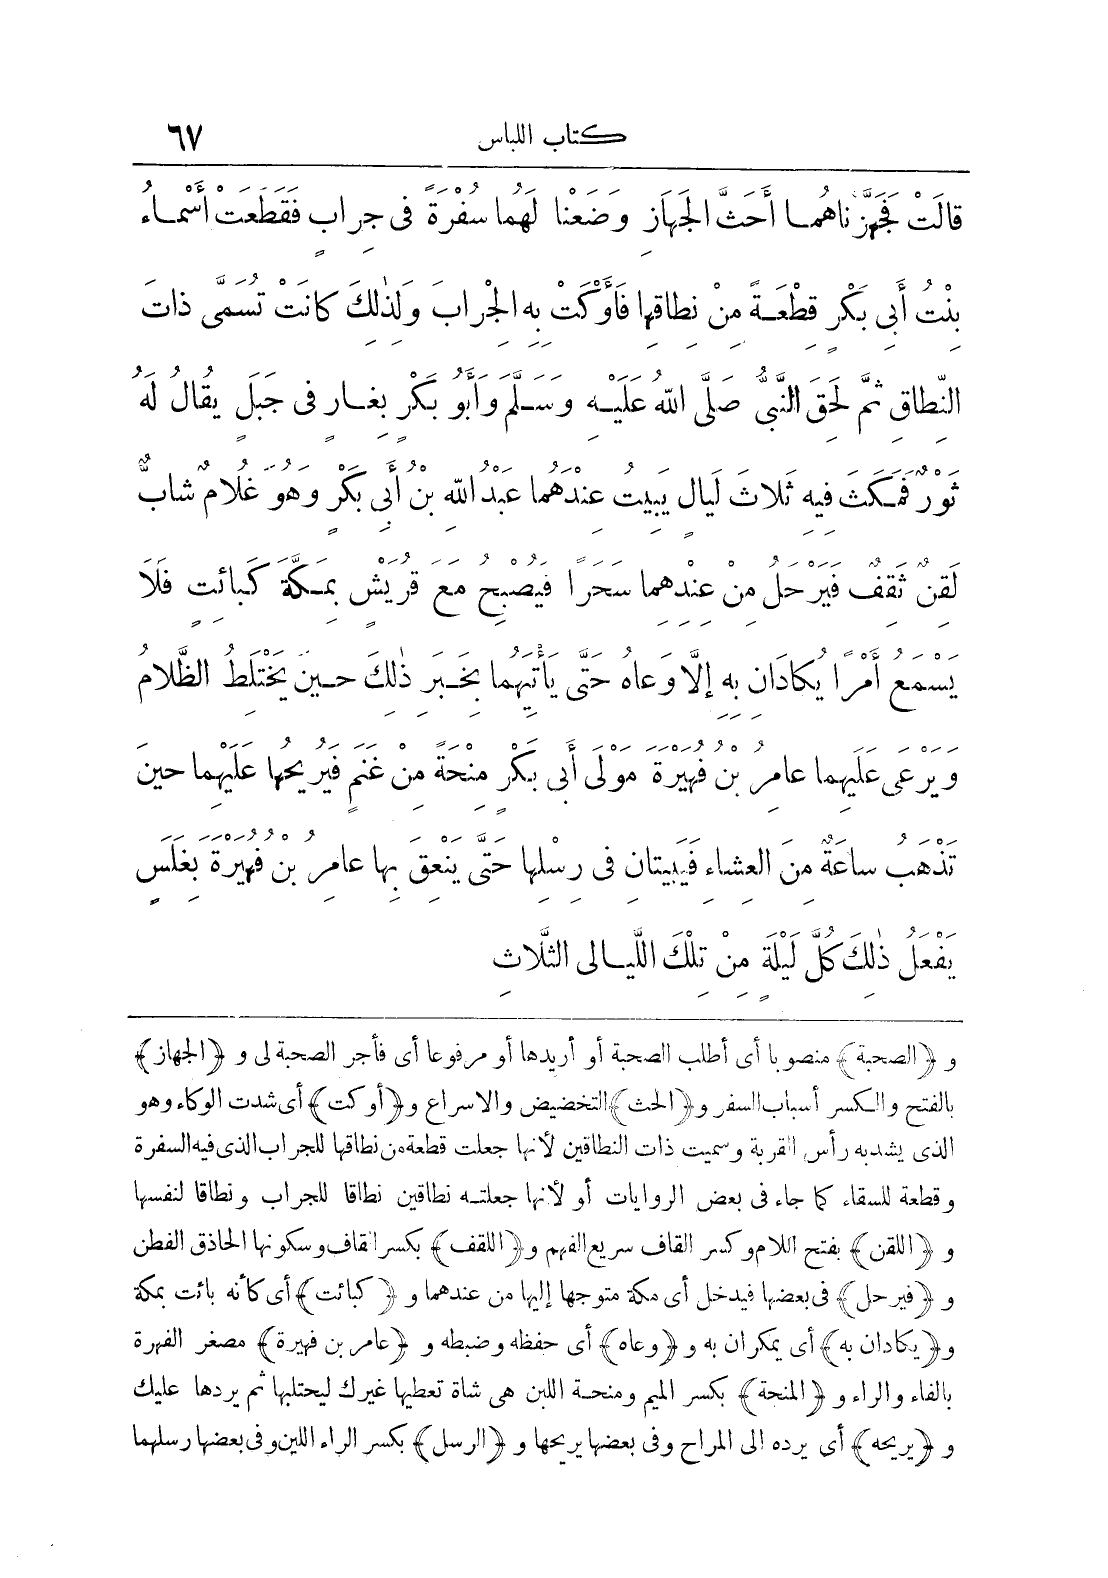 كتاب اللباس ٦٧
قالَتْ فَجَهَّزْناهُما أَحَثَّ الجَهازِ وَضَعْنا لَهُما سُفْرَةً فى جِرابٍ فَقَطَعَتْ أَسْماءُ
بِنْتُ أَبى بَكْرٍ قِطْعَةً مِنْ نِطاقِها فَأَوْكَتْ بِهِ الجِرْابَ وَلِذٰلِكَ كانَتْ تُسَمَّى ذاتَ
النِّطاقِ ثُمَّ لَحِقَ النَّبِىُّ صَلَّى اللهُ عَلَيْهِ وَسَلَّمَ وَأَبُو بَكْرٍ بِغارٍ فى جَبَلٍ يُقالُ لَهُ
ثَوْرٌ فَمَكَثَ فِيهِ ثَلاثَ لَيالٍ يَبِيتُ عِنْدَهُما عَبْدُ اللهِ بْنُ أَبى بَكْرٍ وَهُوَ غُلامٌ شابٌّ
لَقِنٌ ثَقِفٌ فَيَرْحَلُ مِنْ عِنْدِهِما سَحَرًا فَيُصْبِحُ مَعَ قُرَيْشٍ بِمَكَّةَ كَبائِتٍ فَلَا
يَسْمَعُ أَمْرًا يُكادَانِ بِهِ إِلَّا وَعاهُ حَتَّى يَأْتِيَهُما بِخَبَرِ ذٰلِكَ حِينَ يَخْتَلِطُ الظَّلامُ
وَيَرْعى عَلَيْهِما عامِرُ بْنُ فُهَيْرَةَ مَوْلَى أَبى بَكْرٍ مِنْحَةً مِنْ غَنَمٍ فَيُرِيحُها عَلَيْهِما حِينَ
تَذْهَبُ ساعَةٌ مِنَ العِشاءِ فَيَبِيتانِ فى رِسْلِها حَتَّى يَنْعِقَ بِها عامِرُ بْنُ فُهَيْرَةَ بِغَلَسٍ
يَفْعَلُ ذٰلِكَ كُلَّ لَيْلَةٍ مِنْ تِلْكَ اللَّيالى الثَّلاثِ
و ﴿الصحبة﴾ منصوبا أى أطلب الصحبة أو أريدها أو مرفوعا أى فأجر الصحبة لى و ﴿الجهاز﴾
بالفتح والكسر أسباب السفر و﴿الحث﴾ التخضيض والاسراع و﴿أوكت﴾ أى شدت الوكاء وهو
الذى يشد به رأس القربة وسميت ذات النطاقين لأنها جعلت قطعة من نطاقها للجراب الذى فيه السفرة
وقطعة للسقاء كما جاء فى بعض الروايات أو لأنها جعلته نطاقين نطاقا للجراب ونطاقا لنفسها
و ﴿اللقن﴾ بفتح اللام وكسر القاف سريع الفهم و﴿اللقف﴾ بكسر القاف وسكونها الحاذق الفطن
و ﴿فيرحل﴾ فى بعضها فيدخل أى مكة متوجها إليها من عندهما و ﴿كبائت﴾ أى كأنه بائت بمكة
و﴿يكادان به﴾ أى يمكران به و ﴿وعاه﴾ أى حفظه وضبطه و ﴿عامر بن فهيرة﴾ مصغر الفهرة
بالفاء والراء و ﴿المنحة﴾ بكسر الميم ومنحة اللبن هى شاة تعطيها غيرك ليحتلبها ثم يردها عليك
و ﴿يريحه﴾ أى يرده الى المراح وفى بعضها يريحها و ﴿الرسل﴾ بكسر الراء اللبن وفى بعضها رسلهما